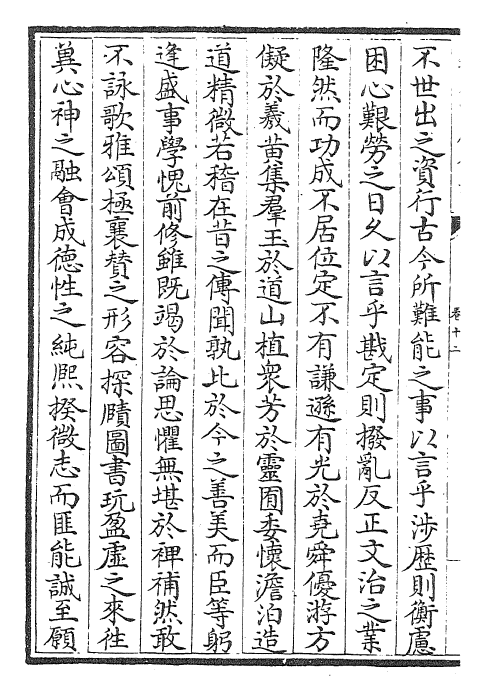 不世出之資行古今所難能之事以言乎涉歴則衡慮
困心艱勞之日久以言乎戡定則撥亂反正文治之業
隆然而功成不居位定不有謙遜有光於堯舜優游方
儗於羲黄集羣玉於道山植衆芳於靈囿委懷澹泊造
道精微若稽在昔之傳聞孰比於今之善美而臣等躬
逢盛事學愧前修雖既竭於論思懼無堪於裨補然敢
不詠歌雅頌極襃賛之形容探賾圖書玩盈虚之來徃
兾心神之融會成徳性之純熈揆微志而匪能誠至願
卷十二